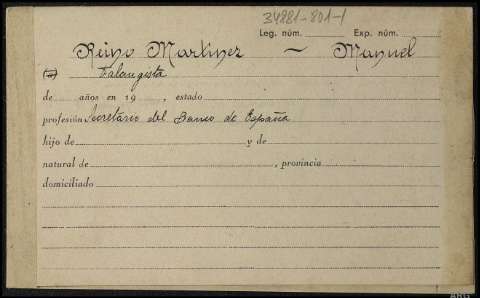 34881-801-1
Leg. núm. Exp. núm.
Reino Martinez ~ Manuel
Falangista
de años en 19 , estado
profesión Secretario del Banco de España
hijo de y de
natural de , provincia
domiciliado